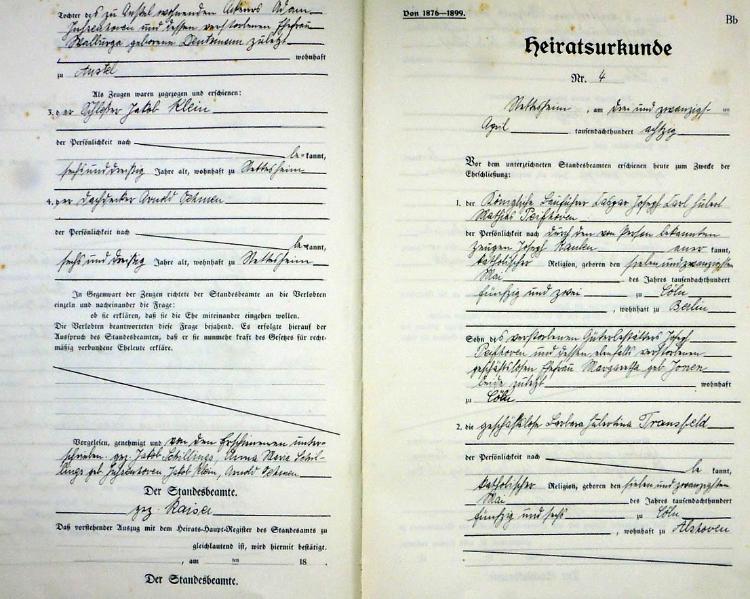 Tochter des zu Anstel wohnenden Ackerers Adam
und dessen verstorbenen Ehefrau
Walburga geborene zuletzt
wohnhaft
zu Anstel
Als Zeugen waren zugezogen und erschienen:
3. der Schlosser Jakob Klein
der Persönlichkeit nach
bekannt,
sechsunddreißig Jahre alt, wohnhaft zu Nettesheim
4. der Dachdecker Arnold Oehmen
der Persönlichkeit nach
bekannt,
sechsunddreißig Jahre alt, wohnhaft zu Nettesheim
In Gegenwart der Zeugen richtete der Standesbeamte an die Verlobten
einzeln und nacheinander die Frage:
ob sie erklären, daß sie die Ehe miteinander eingehen wollen.
Die Verlobten beantworteten diese Frage bejahend. Es erfolgte hierauf der
Ausspruch des Standesbeamten, daß er sie nunmehr kraft des Gesetzes für recht-
mäßig verbundene Eheleute erkläre.
Vorgelesen, genehmigt und von den Erschienenen unter-
schrieben: gez. Jakob Schillings, Anna Maria Schil-
lings geb. Jakob Klein, Arnold Oehmen
Der Standesbeamte.
gez. Kaiser
Daß vorstehender Auszug mit dem Heirats-Haupt-Register des Standesamts zu
gleichlautend ist, wird hiermit bestätigt.
, am ten 18
Der Standesbeamte.
Von 1876—1899.
Bb
Heiratsurkunde
Nr. 4
Nettesheim, am dreiundzwanzigsten
April tausendachthundert achtzig
Vor dem unterzeichneten Standesbeamten erschienen heute zum Zwecke der
Eheschließung:
1. der Königliche Bauführer Caspar Joseph Carl Hubert
Mathias Peifhoven
der Persönlichkeit nach durch den von Person bekannten
Zeugen Joseph anerkannt,
katholischer Religion, geboren den siebenundzwanzigsten
Mai des Jahres tausendachthundert
fünfzig und zwei zu Cöln
, wohnhaft zu Berlin
Sohn des verstorbenen Joseph
Peifhoven und dessen ebenfalls verstorbenen
geschäftslosen Ehefrau Margaretha geb.
beide zuletzt wohnhaft
zu Cöln
2. die geschäftslose Barbara Hubertina Transfeld
der Persönlichkeit nach
bekannt,
katholischer Religion, geboren den siebenundzwanzigsten
Mai des Jahres tausendachthundert
fünfzig und sechs zu Cöln
, wohnhaft zu